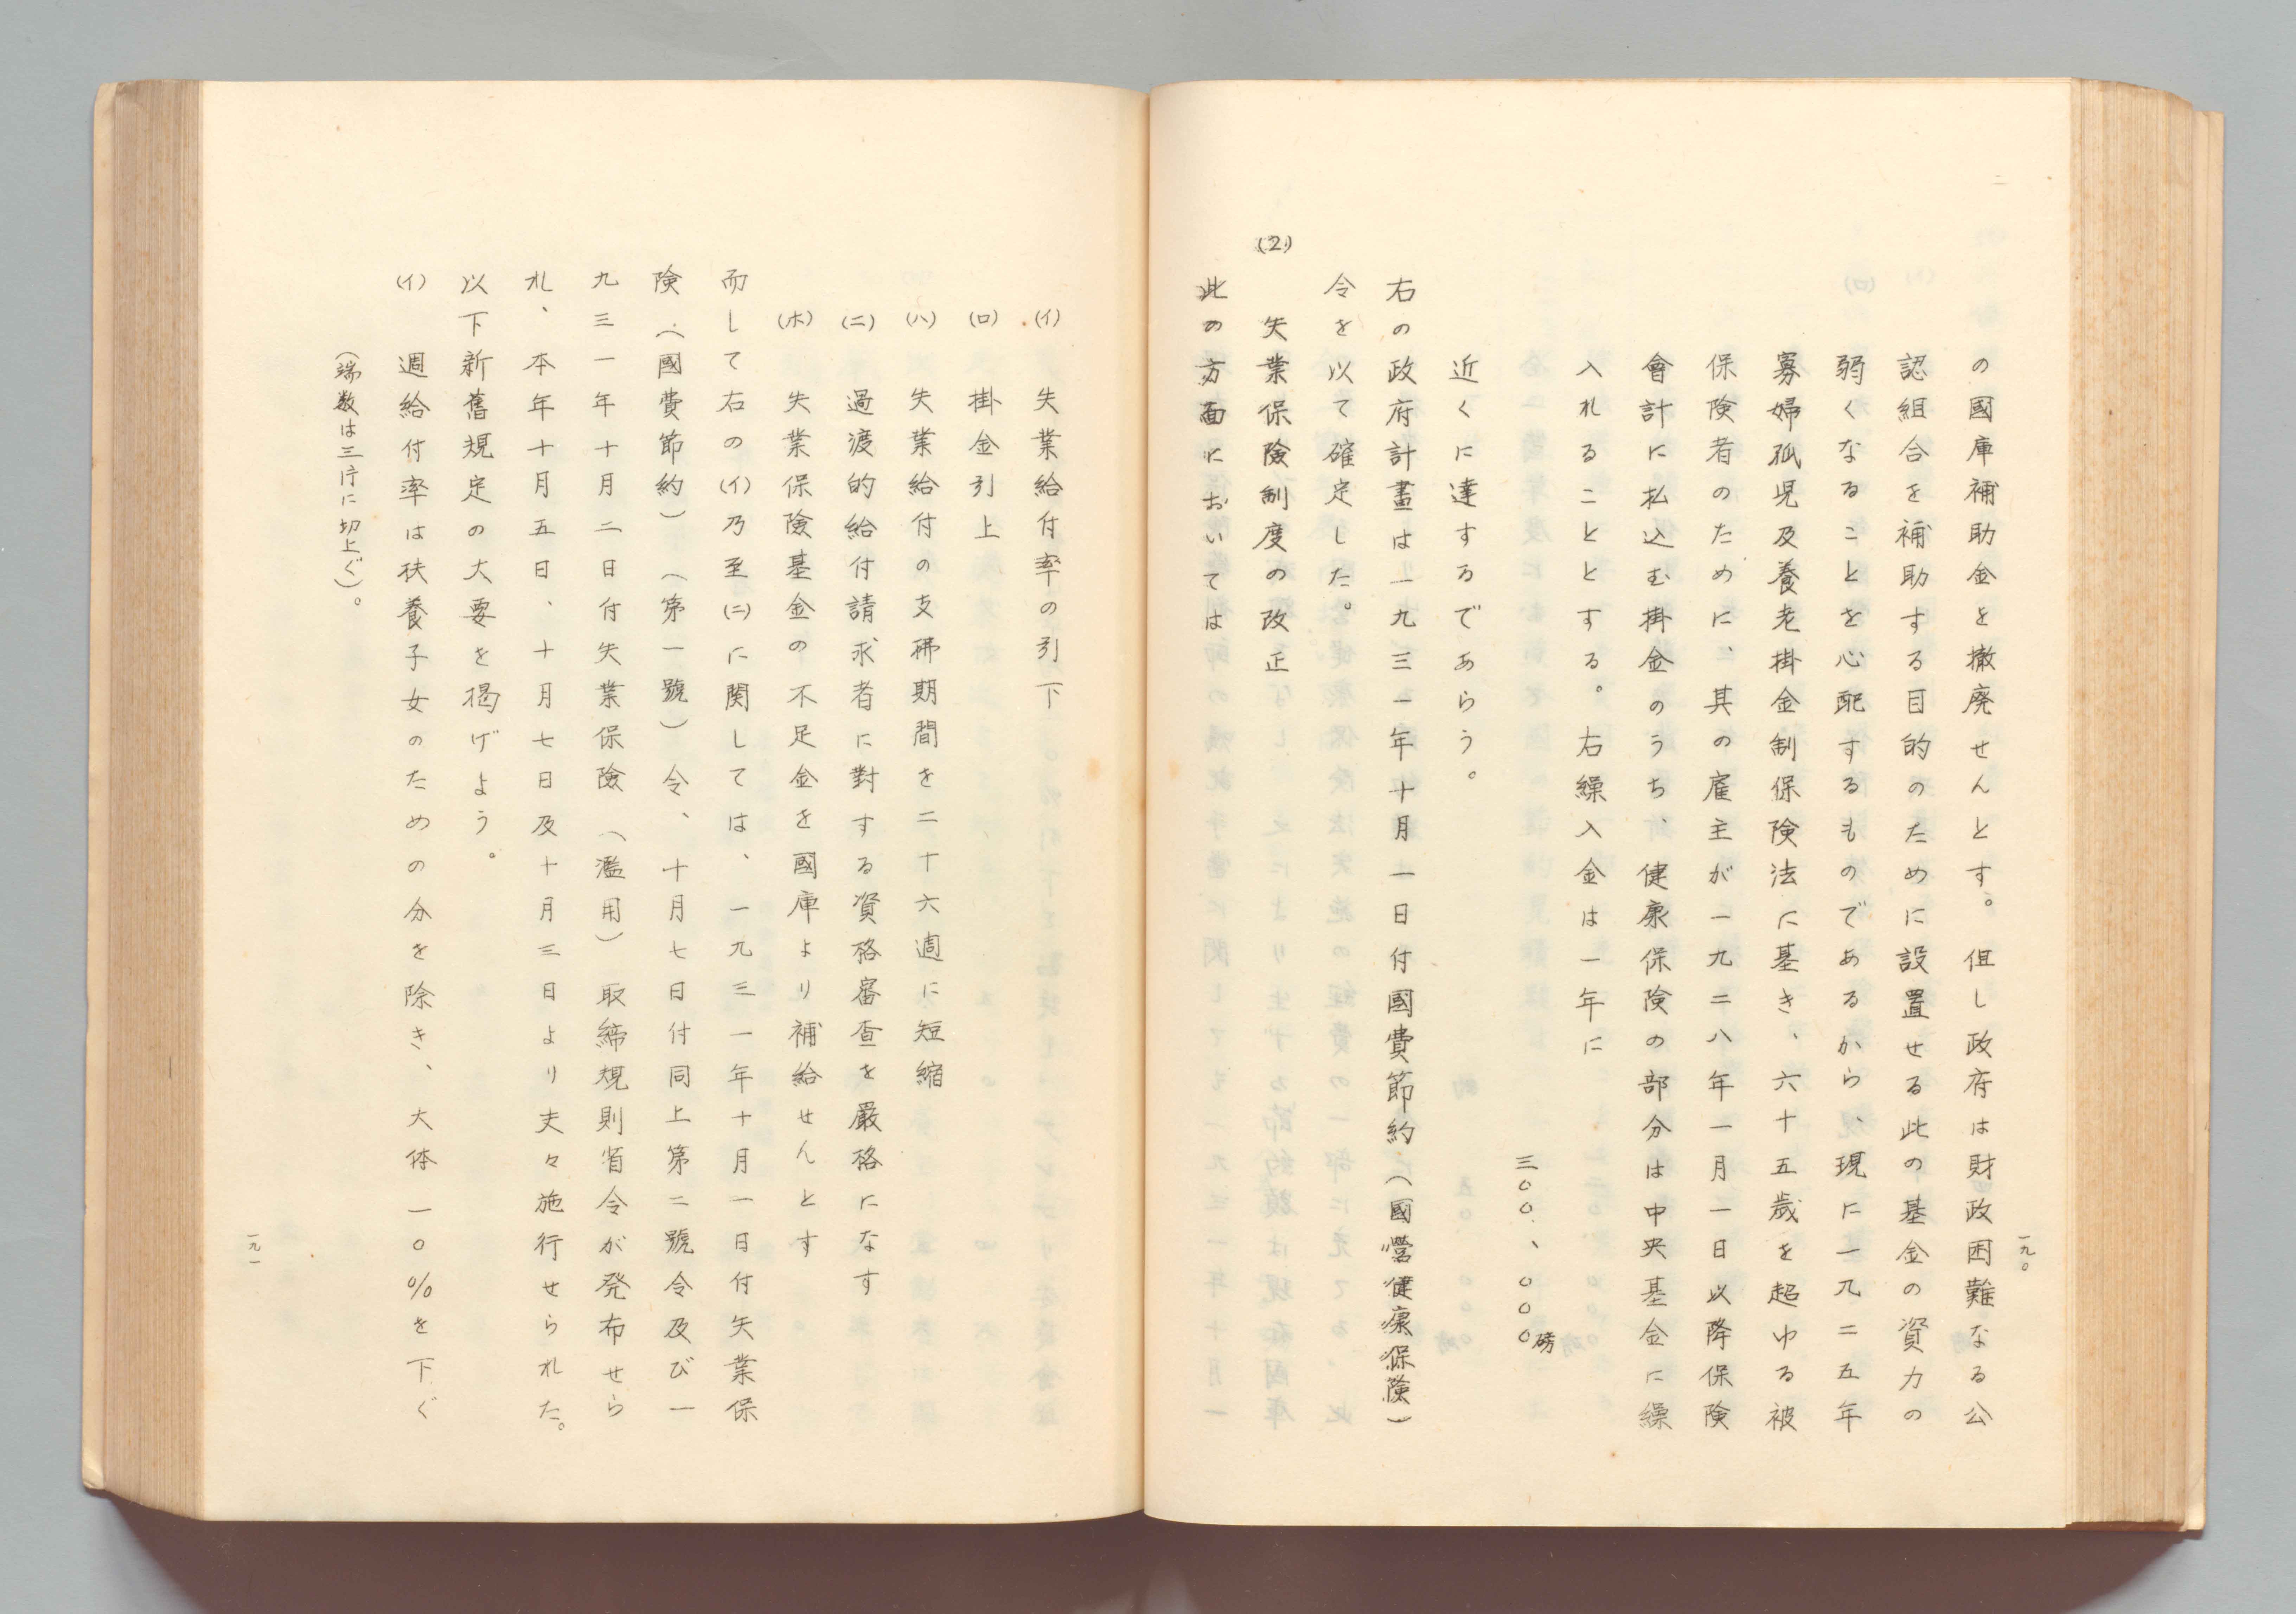 一九〇
の國庫補助金を撤廃せんとす。但し政府は財政困難なる公
認組合を補助する目的のために設置せる此の基金の資力の
弱くなることを心配するものであるから、現に一九二五年
寡婦孤児及養老掛金制保険法に基き、六十五歳を超ゆる被
保険者のために、其の雇主が一九二八年一月一日以降保険
會計に払込む掛金のうち、健康保険の部分は中央基金に繰
入れることとする。右繰入金は一年に
三〇〇、〇〇〇磅
近くに達するであらう。
右の政府計畫は一九三一年十月一日付國費節約（國營健康保険）
令を以て確定した。
(2) 失業保険制度の改正
此の方面においては
(イ) 失業給付率の引下
(ロ) 掛金引上
(ハ) 失業給付の支拂期間を二十六週に短縮
(ニ) 過渡的給付請求者に對する資格審査を嚴格になす
(ホ) 失業保険基金の不足金を國庫より補給せんとす
而して右の(イ)乃至(ニ)に関しては、一九三一年十月一日付失業保
険（國費節約）（第一號）令、十月七日付同上第二號令及び一
九三一年十月二日付失業保険（濫用）取締規則省令が発布せら
れ、本年十月五日、十月七日及十月三日より夫々施行せられた。
以下新舊規定の大要を掲げよう。
(イ) 週給付率は扶養子女のための分を除き、大体一〇％を下ぐ
（端数は三片に切上ぐ）。
一九一